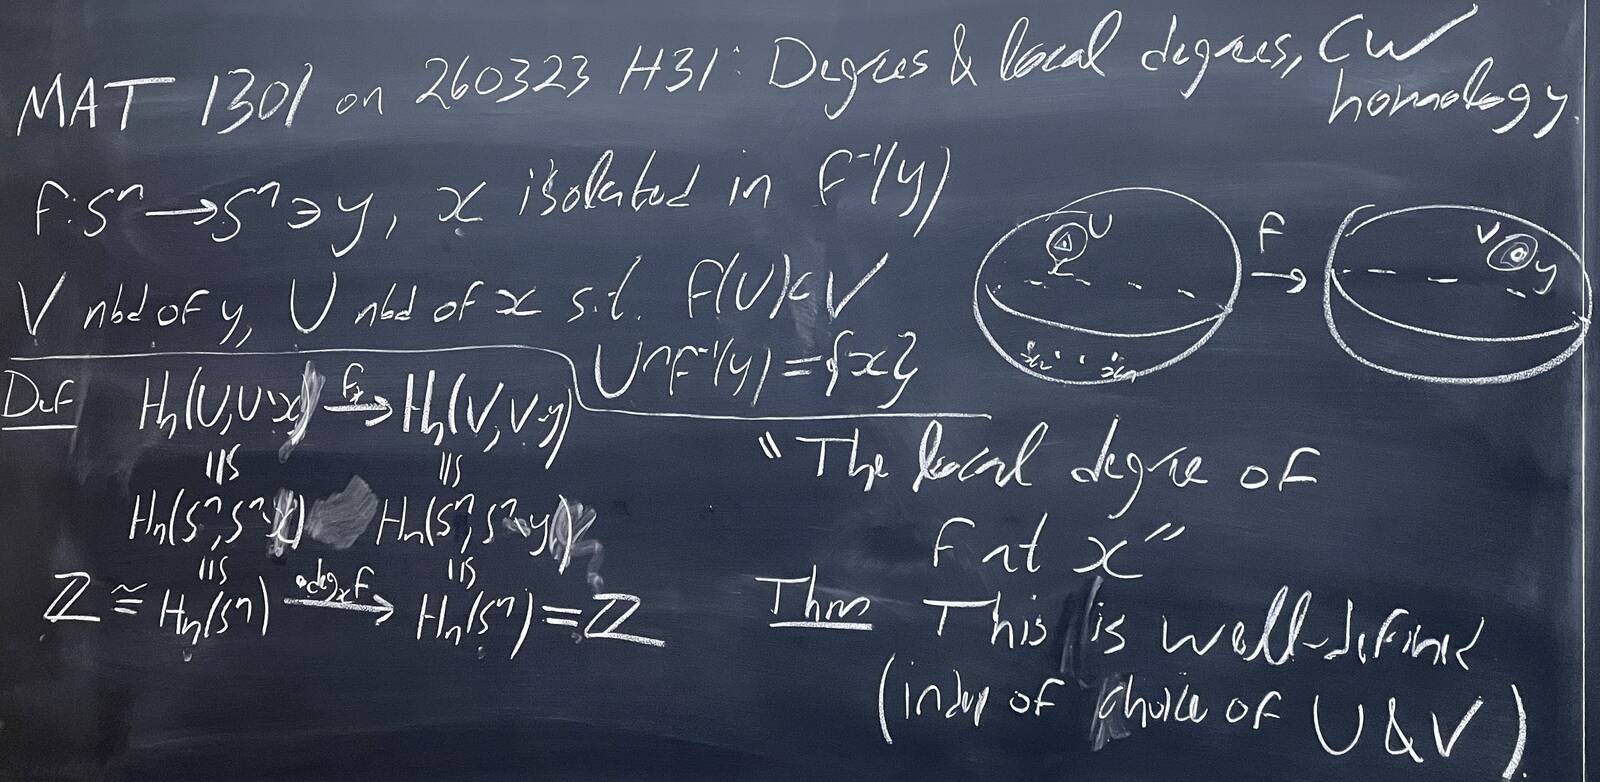 MAT 1301 on 260323 H31: Degrees & local degrees, CW homology.
f: Sⁿ → Sⁿ ∋ y, x isolated in f⁻¹(y)
V nbd of y, U nbd of x s.t. f(U) ⊂ V
U ∩ f⁻¹(y) = {x}
U f V y
Def Hₙ(U, U\x) f⁎→ Hₙ(V, V\y)
≅ ≅
Hₙ(Sⁿ, Sⁿ\x) Hₙ(Sⁿ, Sⁿ\y)
≅ ≅
ℤ ≅ Hₙ(Sⁿ) ·degₓf→ Hₙ(Sⁿ) = ℤ
"The local degree of
f at x"
Thm This is well-defined
(indep of choice of U & V)